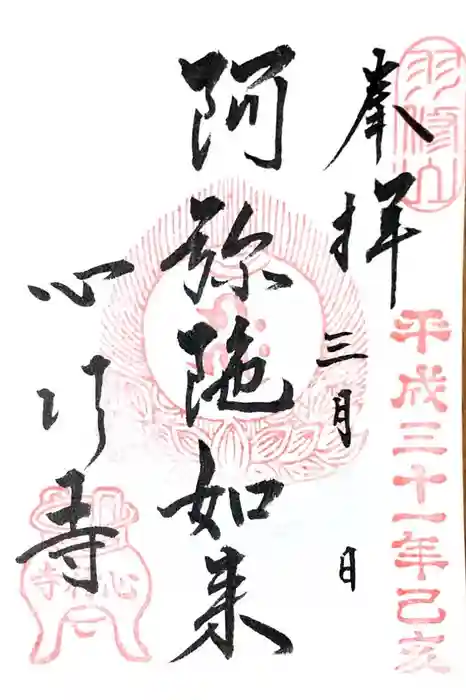 羽徳山
平成三十一年己亥
奉拝
三月 日
阿弥陀如来
心行寺
心行寺